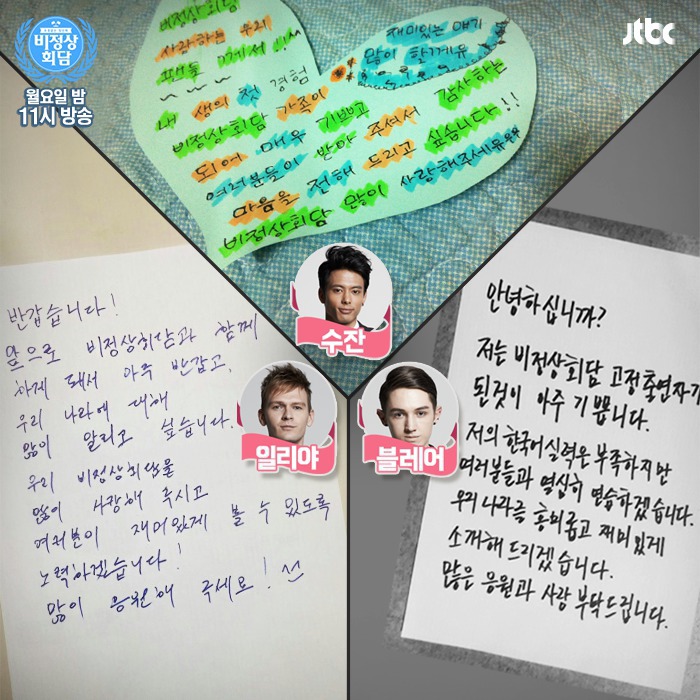 비정상
회담
월요일 밤
11시 방송
jtbc
비정상회담
사랑하는 우리
께서
재미있는 얘기
많이 할게유
내 생의 첫 경험
비정상회담 가족이
되어 매우 기쁘고
여러분들이 받아 주셔서 감사하는
마음을 전해 드리고 싶습니다!!
비정상회담 많이 사랑해주세유
수잔
일리야
블레어
반갑습니다!
앞으로 비정상회담과 함께
하게 돼서 아주 반갑고,
우리 나라에 대해
많이 알리고 싶습니다.
우리 비정상회담을
많이 사랑해 주시고
여러분이 재미있게 볼 수 있도록
노력하겠습니다!
많이 응원해 주세요!
안녕하십니까?
저는 비정상회담 고정출연자가
된것이 아주 기쁩니다.
저의 한국어실력은 부족하지만
여러분들과 열심히 연습하겠습니다
우리 나라를 흥미롭고 재미있게
소개해 드리겠습니다.
많은 응원과 사랑 부탁드립니다.